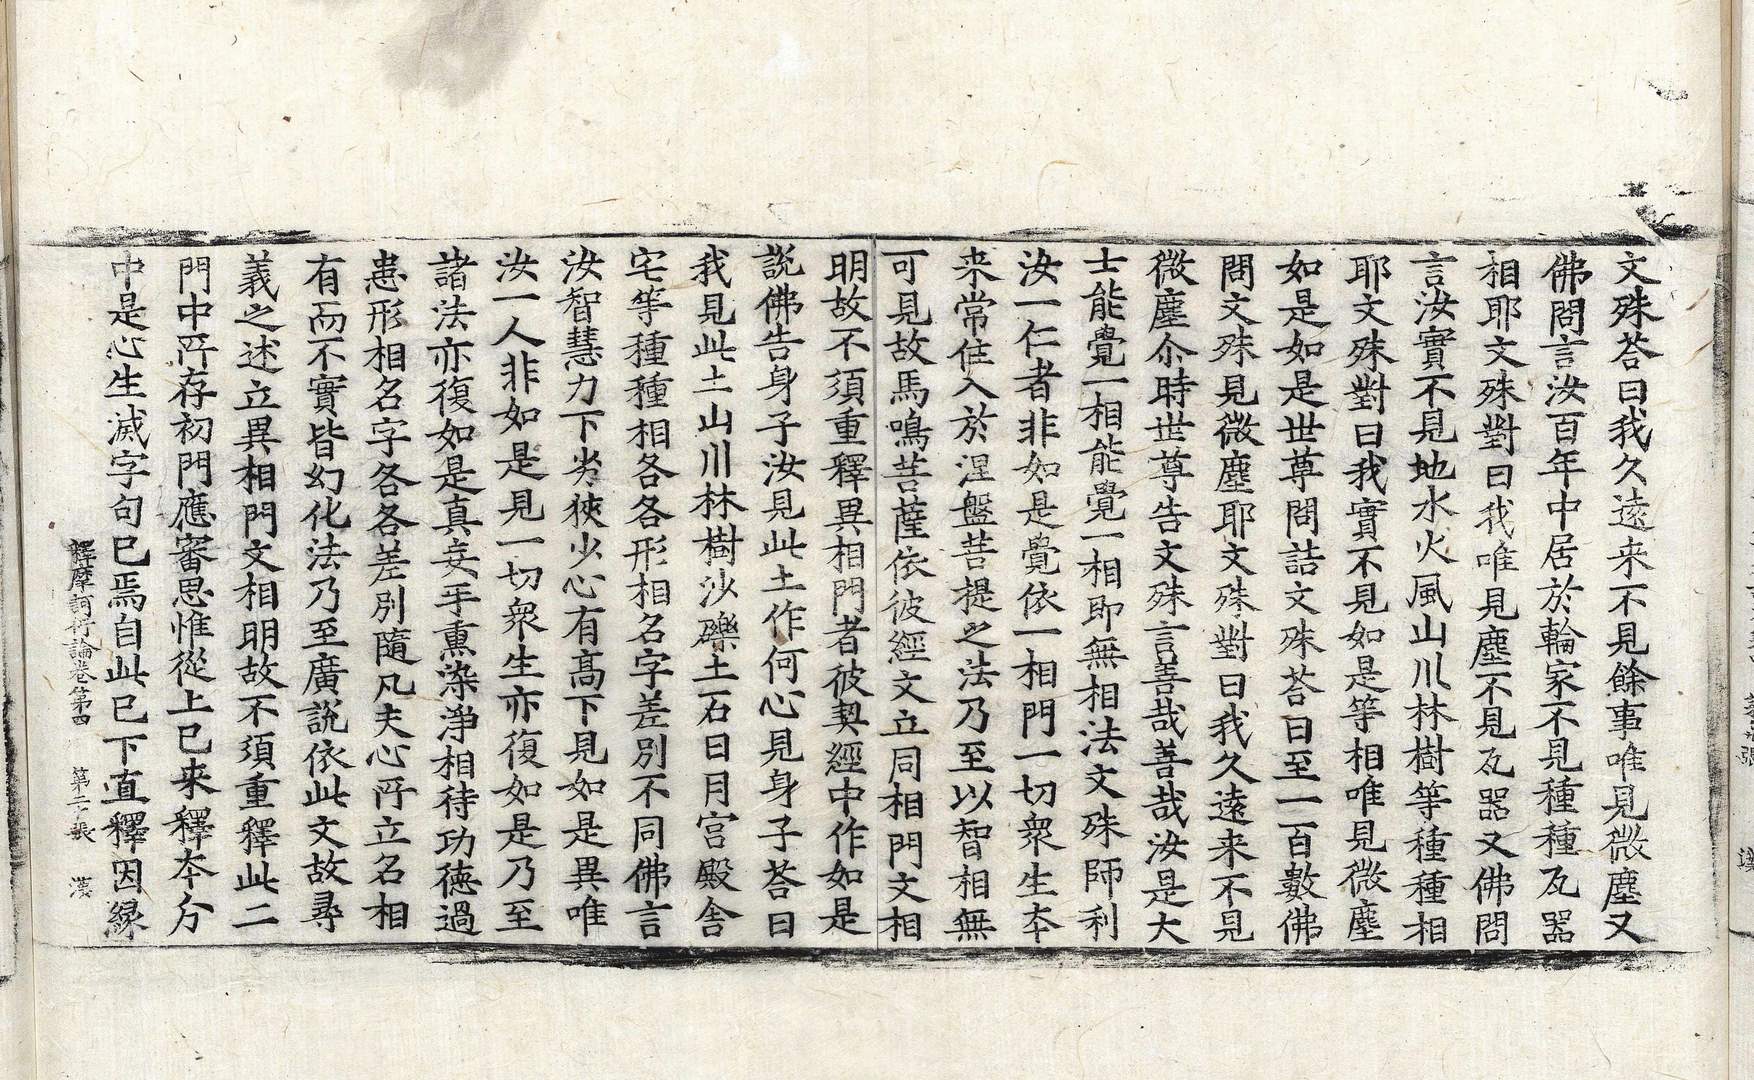 文殊荅曰我久遠来不見餘事唯見微塵又
佛問言汝百年中居於輪家不見種種瓦器
相耶文殊對曰我唯見塵不見瓦器又佛問
言汝實不見地水火風山川林樹等種種相
耶文殊對曰我實不見如是等相唯見微塵
如是如是世尊問詰文殊荅曰至一百數佛
問文殊見微塵耶文殊對曰我久遠来不見
微塵尒時世尊告文殊言善哉善哉汝是大
士能覺一相能覺一相即無相法文殊師利
汝一仁者非如是覺依一相門一切衆生本
来常住入於涅盤菩提之法乃至以智相無
可見故馬鳴菩薩依彼經文立同相門文相
明故不須重釋異相門者彼契經中作如是
說佛告身子汝見此土作何心見身子荅曰
我見此土山川林樹沙礫土石日月宮殿舎
宅等種種相各各形相名字差別不同佛言
汝智慧力下劣狹少心有高下見如是異唯
汝一人非如是見一切衆生亦復如是乃至
諸法亦復如是真妄手熏染淨相待功德過
患形相名字各各差別隨凡夫心所立名相
有而不實皆幻化法乃至廣說依此文故尋
義之述立異相門文相明故不須重釋此二
門中所存初門應審思惟從上已来釋本分
中是心生滅字句已焉自此已下直釋因縁
釋摩訶衍論卷第四 第二張 漢